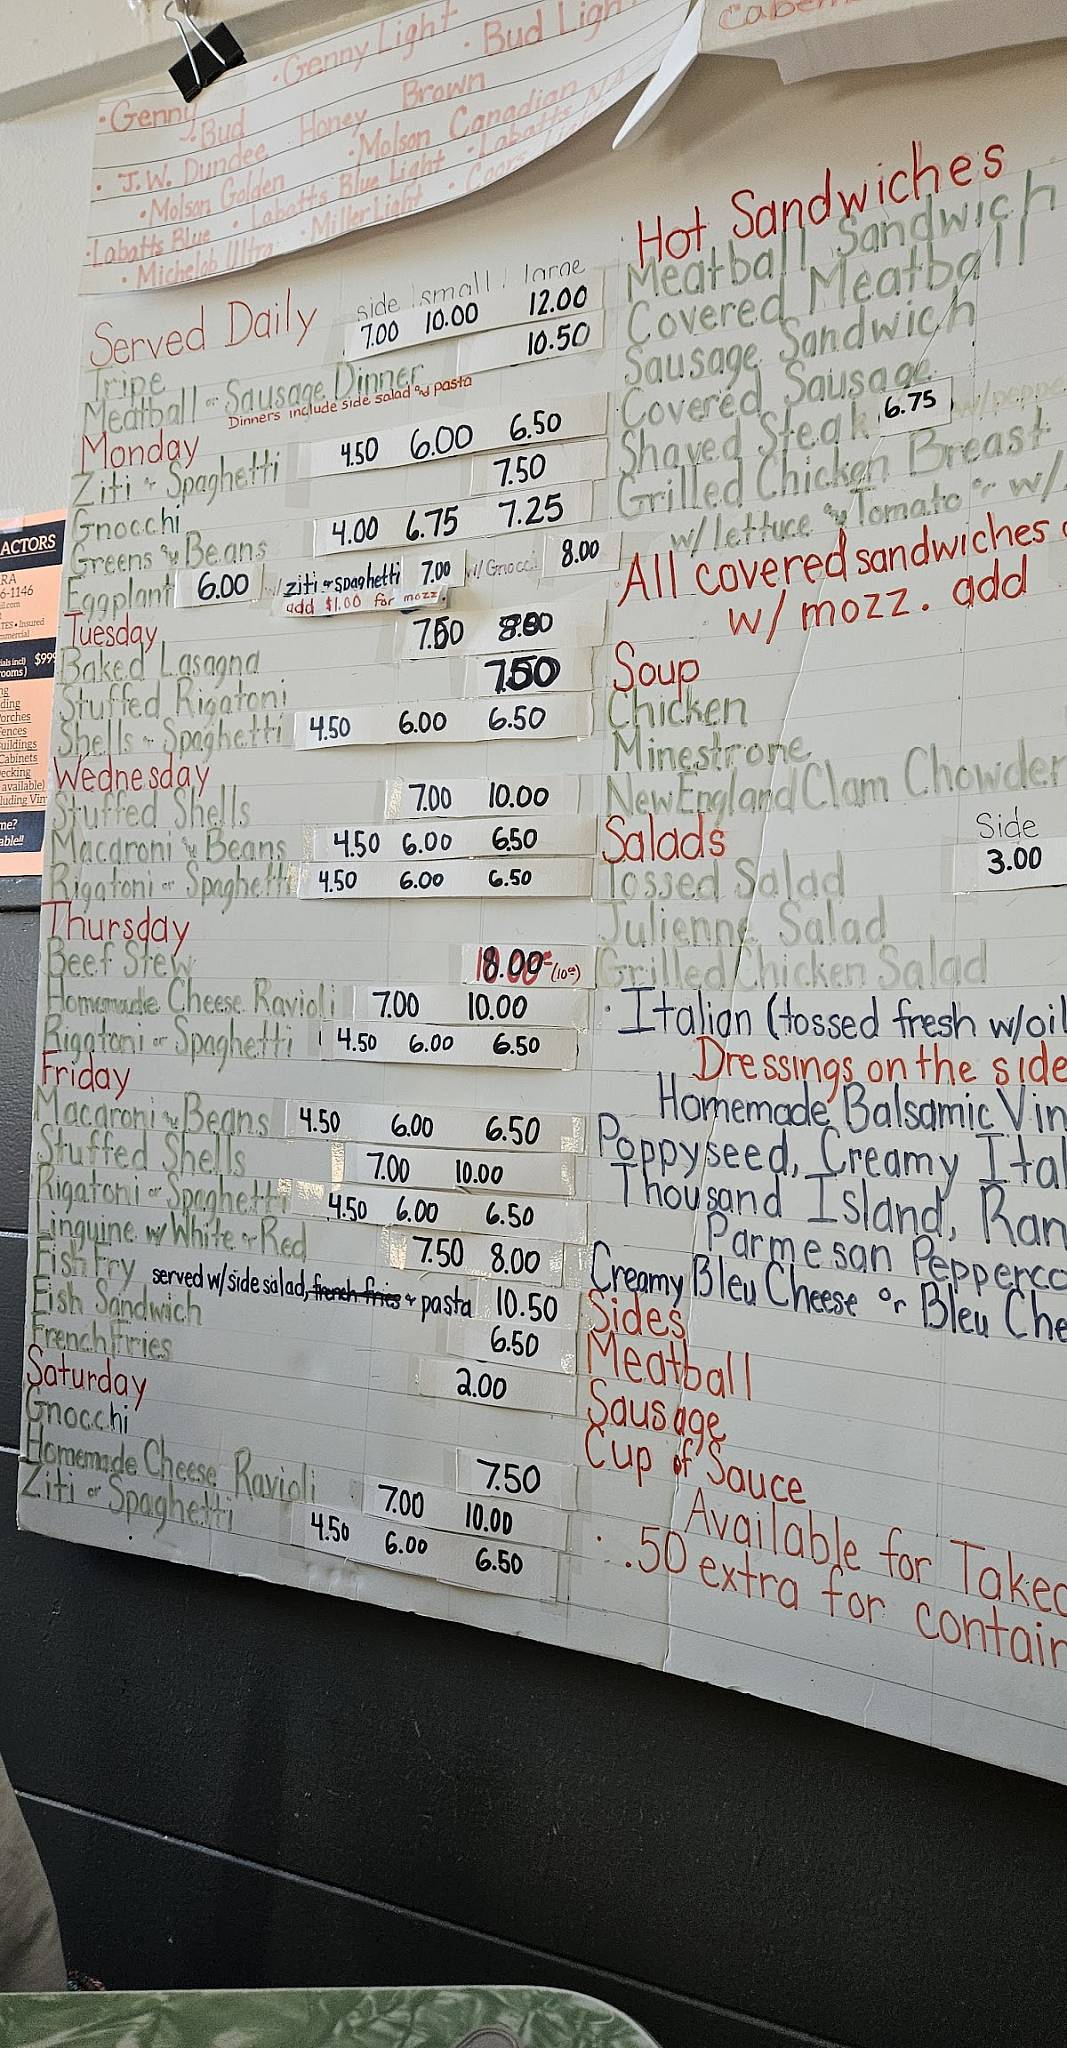 Cabern
· Genny Light · Bud Ligh
· Genny
· Bud Honey Brown
· J.W. Dundee · Molson Canadian
· Molson Golden · Labatts NA
· Labatts Blue · Labatts Blue Light · Coors
· Michelob Ultra · Miller Light
Served Daily side small large
Tripe 7.00 10.00 12.00
Meatball or Sausage Dinner 10.50
Dinners include side salad and pasta
Monday
Ziti or Spaghetti 4.50 6.00 6.50
Gnocchi 7.50
Greens & Beans 4.00 6.75 7.25
Eggplant 6.00 w/ ziti or spaghetti 7.00 w/ Gnocc 8.00
add $1.00 for mozz.
Tuesday
Baked Lasagna 7.50 8.00
Stuffed Rigatoni 7.50
Shells or Spaghetti 4.50 6.00 6.50
Wednesday
Stuffed Shells 7.00 10.00
Macaroni & Beans 4.50 6.00 6.50
Rigatoni or Spaghetti 4.50 6.00 6.50
Thursday
Beef Stew 18.00 (10⁰⁰)
Homemade Cheese Ravioli 7.00 10.00
Rigatoni or Spaghetti 4.50 6.00 6.50
Friday
Macaroni & Beans 4.50 6.00 6.50
Stuffed Shells 7.00 10.00
Rigatoni or Spaghetti 4.50 6.00 6.50
Linguine w/ White or Red 7.50 8.00
Fish Fry served w/ side salad, french fries & pasta 10.50
Fish Sandwich 6.50
French Fries 2.00
Saturday
Gnocchi 7.50
Homemade Cheese Ravioli 7.00 10.00
Ziti or Spaghetti 4.50 6.00 6.50
Hot Sandwiches
Meatball Sandwich
Covered Meatball
Sausage Sandwich
Covered Sausage
Shaved Steak 6.75 w/ peppe
Grilled Chicken Breast
w/ lettuce & Tomato or w/
All covered sandwiches
w/ mozz. add
Soup
Chicken
Minestrone
New England Clam Chowder
Salads Side
Tossed Salad 3.00
Julienne Salad
Grilled Chicken Salad
· Italian (tossed fresh w/oil
Dressings on the side
Homemade Balsamic Vin
Poppyseed, Creamy Ital
Thousand Island, Ran
Parmesan Pepperco
Creamy Bleu Cheese or Bleu Che
Sides
Meatball
Sausage
Cup of Sauce
Available for Takeo
.50 extra for contain
ACTORS
RA
6-1146
l.com
TES • Insured
mmercial
ials incl) $999
ooms)
ng
ding
orches
ences
uildings
Cabinets
ecking
available)
luding Vin
me?
able!!